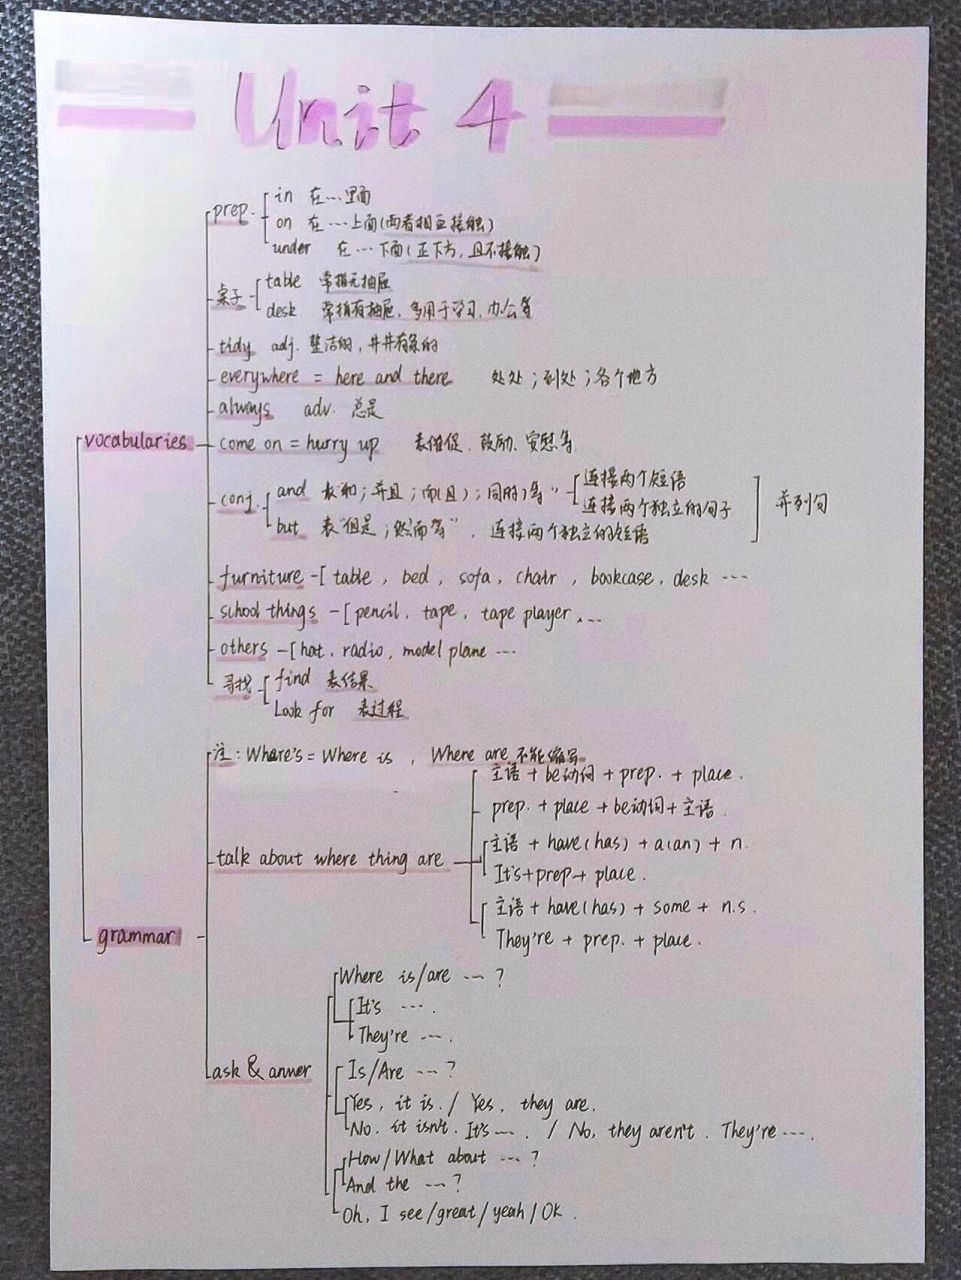 Unit 4
prep. in 在…里面
on 在…上面(两者相互接触)
under 在…下面(正下方,且不接触)
桌子 table 常指无抽屉
desk 常指有抽屉,多用于学习,办公等
tidy adj. 整洁的,井井有条的
everywhere = here and there 处处;到处;各个地方
always adv. 总是
vocabularies
come on = hurry up 表催促、鼓励、安慰等
conj. and 表"和;并且;而(且);同时)等" 连接两个短语
连接两个独立的句子 并列句
but 表"但是;然而等", 连接两个独立的短语
furniture table, bed, sofa, chair, bookcase, desk ...
school things pencil, tape, tape player, ...
others hat, radio, model plane ...
寻找 find 表结果
Look for 表过程
注: Where's = Where is , Where are 不能缩写
主语 + be动词 + prep. + place.
prep. + place + be动词 + 主语.
talk about where thing are
主语 + have(has) + a(an) + n.
It's + prep + place.
主语 + have(has) + some + n.s.
They're + prep. + place.
grammar
Where is/are ...?
It's ....
They're ....
ask & anwer
Is/Are ...?
Yes, it is. / Yes, they are.
No. it isn't. It's .... / No, they aren't. They're ....
How/What about ...?
And the ...?
Oh, I see/great/yeah/Ok.